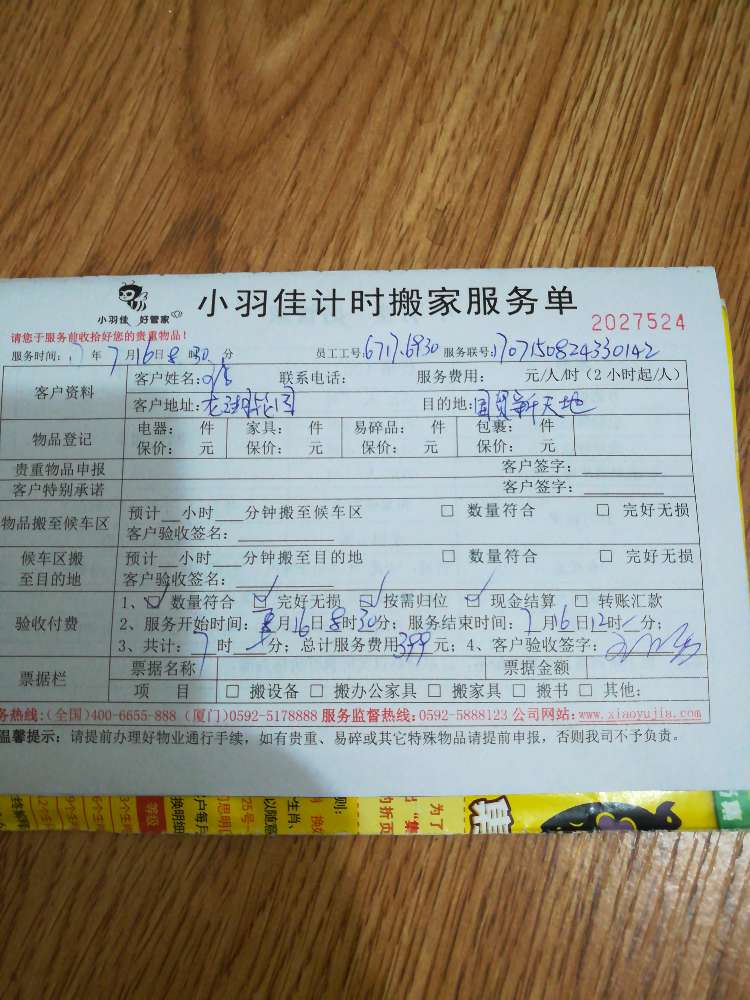 小羽佳 好管家
小羽佳计时搬家服务单
2027524
请您于服务前收拾好您的贵重物品！
服务时间：17年7月16日8时30分 员工工号：6717.6930 服务联号：1707150824330142
客户资料 客户姓名： 联系电话： 服务费用： 元/人/时（2小时起/人）
客户地址： 目的地：国贸新天地
物品登记 电器： 件 家具： 件 易碎品： 件 包裹： 件
保价： 元 保价： 元 保价： 元 保价： 元
贵重物品申报 客户签字：
客户特别承诺 客户签字：
物品搬至候车区 预计__小时___分钟搬至候车区 □ 数量符合 □ 完好无损
客户验收签名：
候车区搬至目的地 预计__小时___分钟搬至目的地 □ 数量符合 □ 完好无损
客户验收签名：
验收付费 1、☑ 数量符合 ☑ 完好无损 ☑ 按需归位 ☑ 现金结算 □ 转账汇款
2、服务开始时间：月16日8时30分；服务结束时间：7月16日12时分；
3、共计：7时分；总计服务费用399元；4、客户验收签字：
票据栏 票据名称 票据金额
项 目 □ 搬设备 □ 搬办公家具 □ 搬家具 □ 搬书 □ 其他：
务热线：(全国)400-6655-888 (厦门)0592-5178888 服务监督热线：0592-5888123 公司网站：www.xiaoyujia.com
温馨提示：请提前办理好物业通行手续，如有贵重、易碎或其它特殊物品请提前申报，否则我司不予负责。